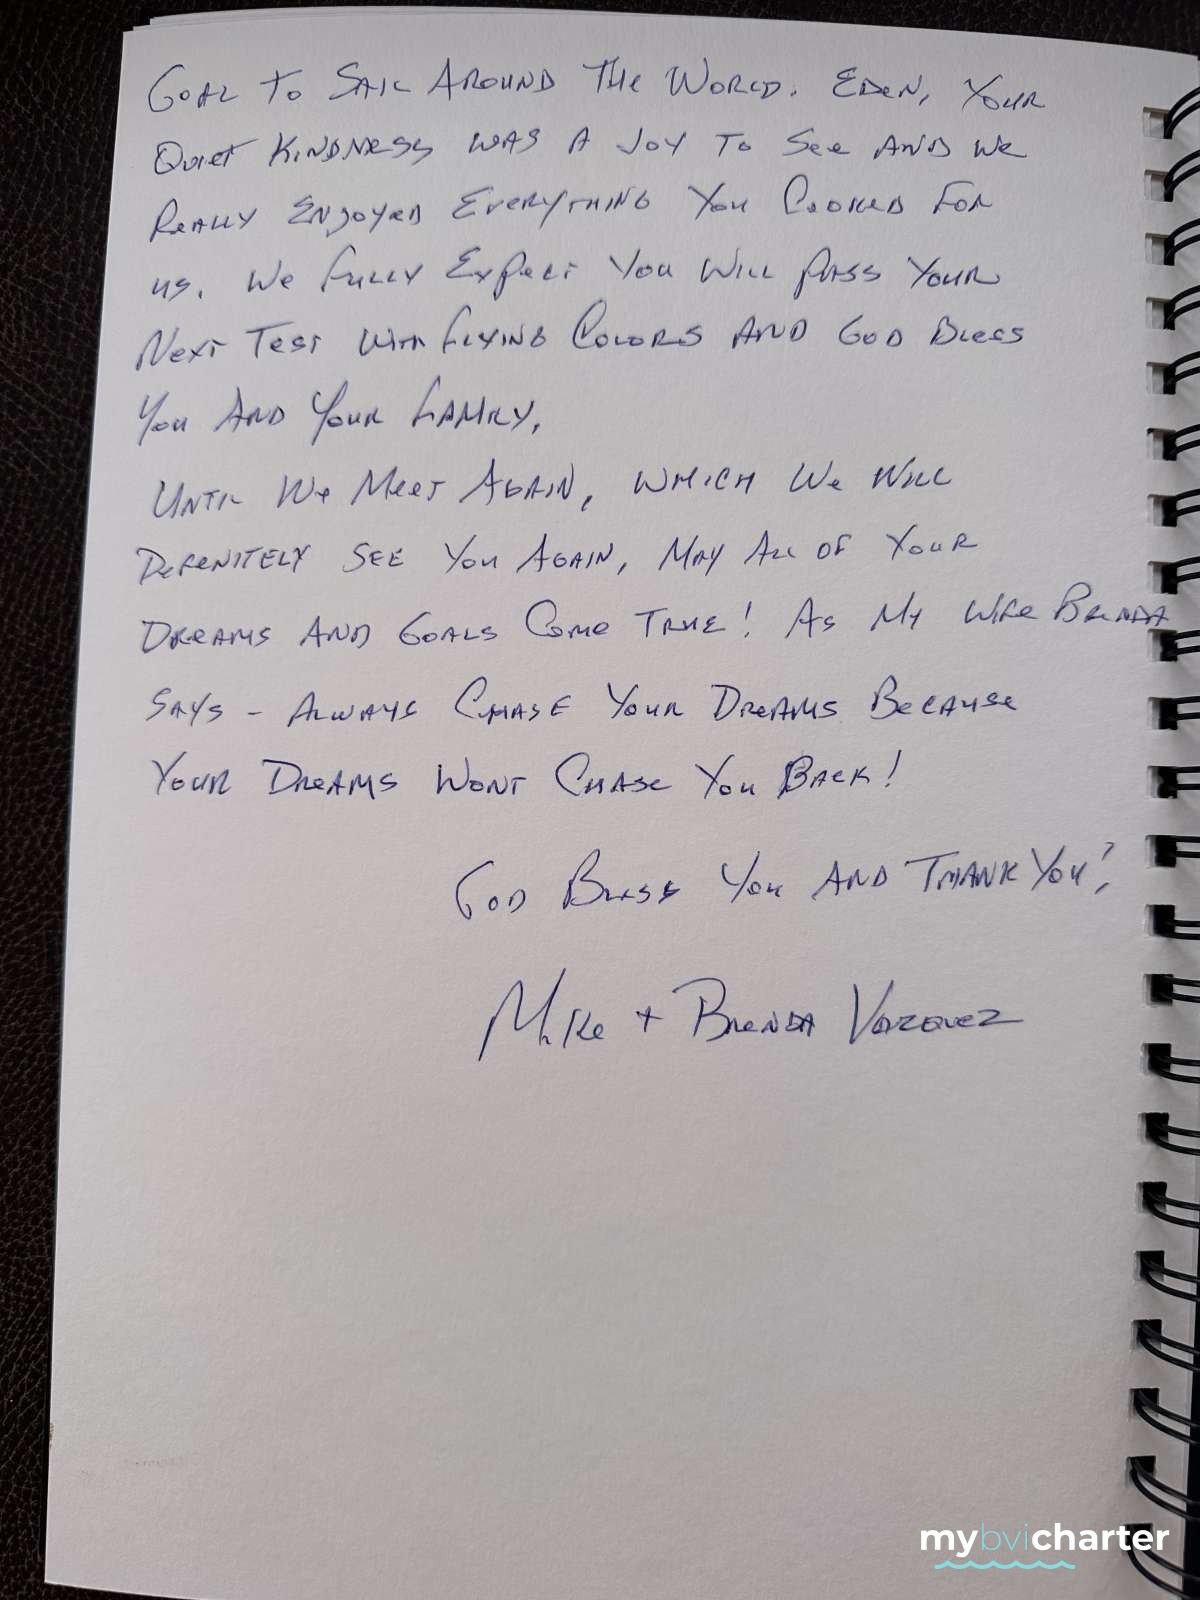 Goal to Sail Around The World. Eden, Your
Quiet Kindness was a Joy to See and we
Really Enjoyed Everything You Cooked For
us. We fully Expect You Will pass Your
Next Test With flying Colors and God Bless
You And Your family.
Until We Meet Again, which We Will
Defenitely see You Again, May All of Your
Dreams and Goals Come True! As My Wife Brenda
says - Always Chase Your Dreams Because
Your Dreams Wont Chase You Back!
God Bless You and Thank You!
Mike + Brenda
mybvicharter